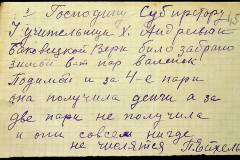 Господину Субиректору
У учительници Х. Андреевки
Баковецкой Веры било забрано
зимой пар валенок
и за 4-е пари
она получила денги а за
две пари не получила
и они совсем нигде
не числятся